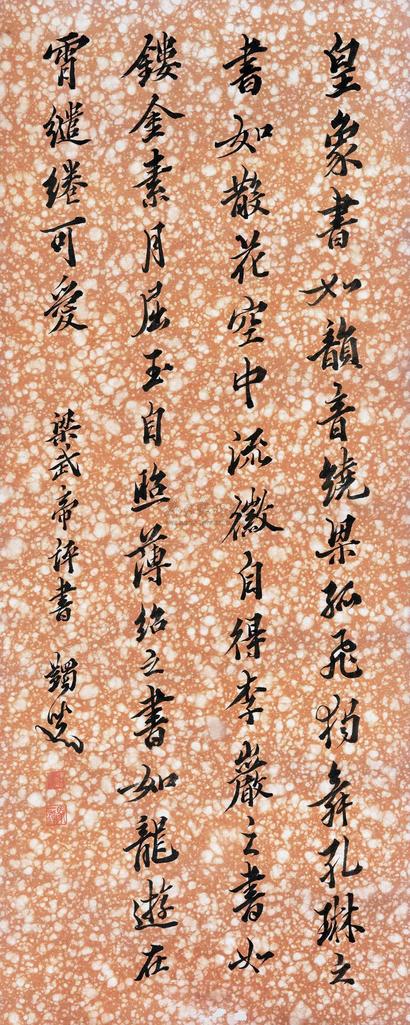 皇象書如韻音繞梁孤飛独舞孔琳之
書如散花空中流徽自得李巖之書如
鏤金素月屈玉自照薄紹之書如龍遊在
霄繾綣可愛
梁武帝評書